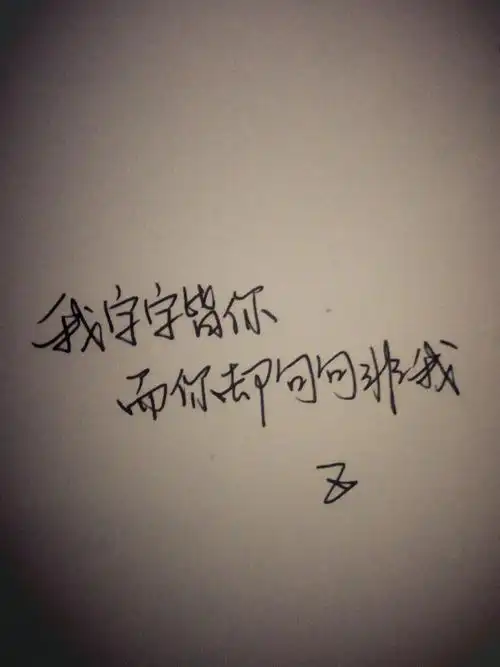 我字字皆你
而你却句句非我